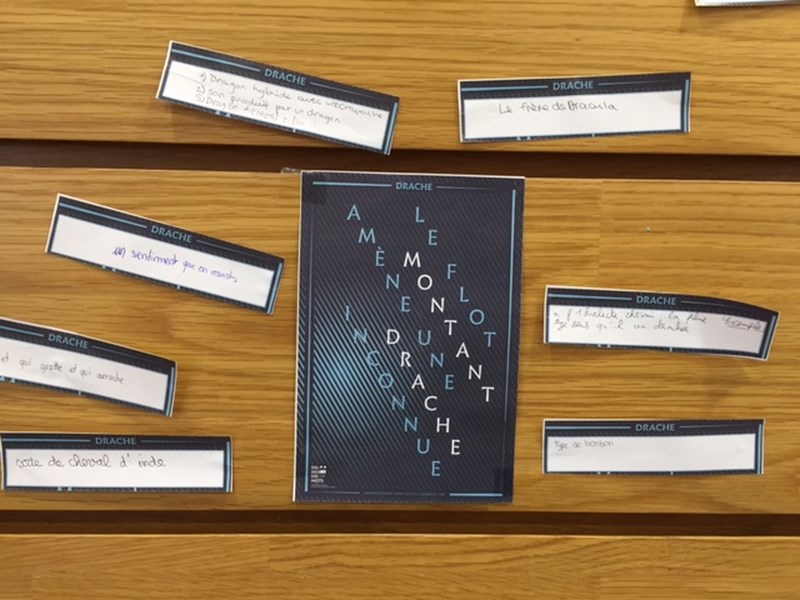 DRACHE
1) Dragon hybride avec
2) son produit par un dragon
3) Dragon
DRACHE
Le frère de Dracula
DRACHE
un sentiment que on ressent
DRACHE
et qui gratte et qui arrache
DRACHE
sorte de cheval d'inde
DRACHE
LE
FLOT
MONTANT
AMÈNE
UNE
DRACHE
INCONNUE
DRACHE
dialecte chtimi la pluie
je sens qu'il va dracher
DRACHE
type de bonbon